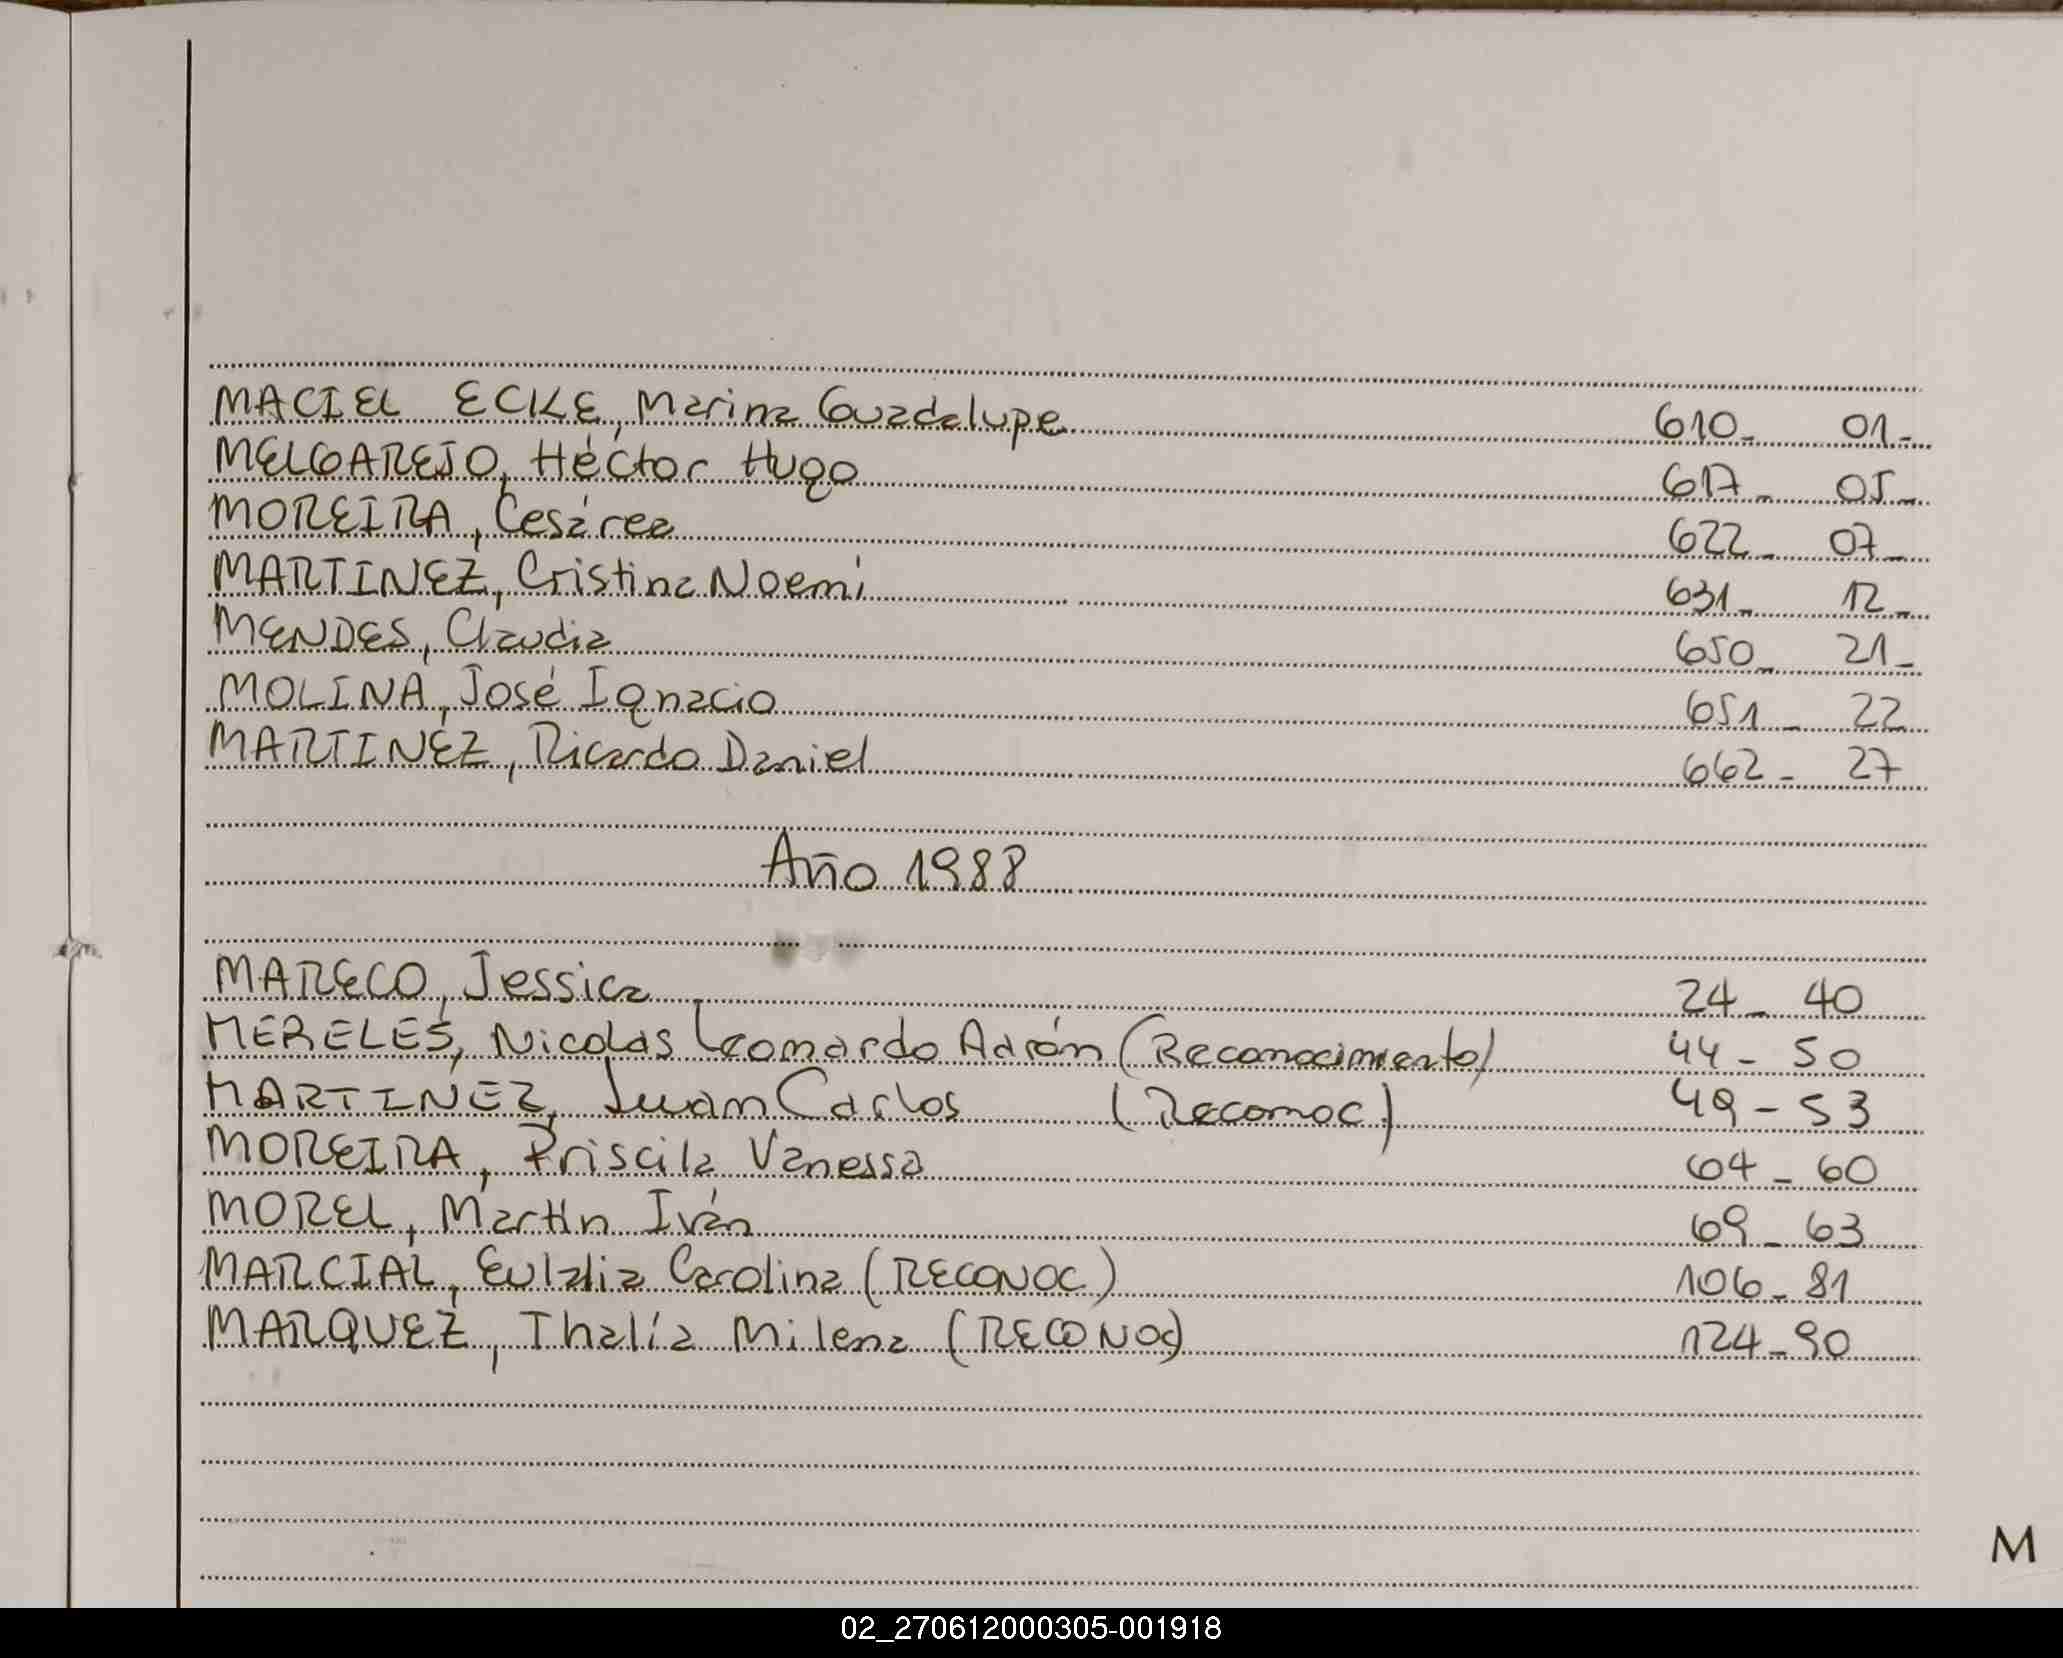 MACIEL ECKE, Marina Guadalupe 610- 01-
MELGAREJO, Héctor Hugo 617- 05-
MOREIRA, Cesárea 622- 07-
MARTINEZ, Cristina Noemí 631- 12-
MENDES, Claudia 650- 21-
MOLINA, José Ignacio 651- 22
MARTINEZ, Ricardo Daniel 662- 27
Año 1988
MARECO, Jessica 24- 40
MERELES, Nicolas Leonardo Adrón (Reconocimiento) 44- 50
MARTINEZ, Juan Carlos (Reconoc) 49- 53
MOREIRA, Priscila Vanessa 64- 60
MOREL, Martín Iván 69- 63
MARCIAL, Eulalia Carolina (RECONOC) 106- 81
MARQUEZ, Thalía Milena (RECONOC) 124- 90
M
02_270612000305-001918